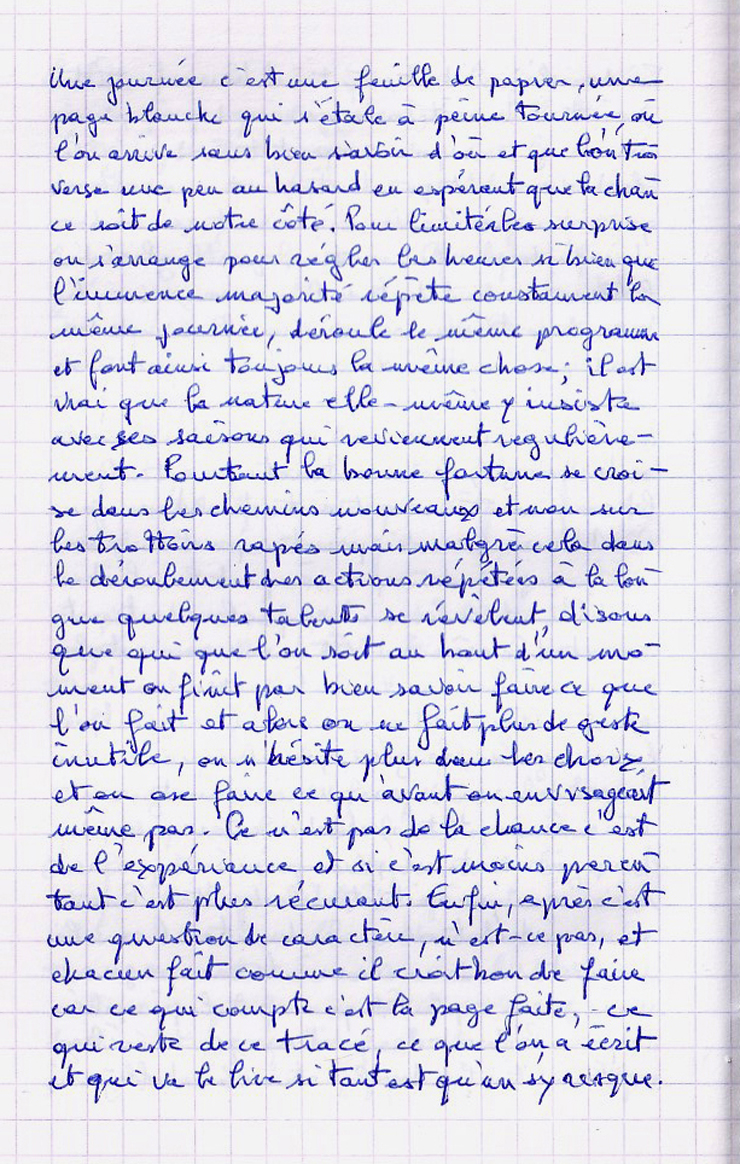 Une journée c'est une feuille de papier, une
page blanche qui s'étale à peine tournée, où
l'on arrive sans bien savoir d'où et que l'on tra
verse une peu au hasard en espérant que la chan
ce soit de notre côté. Pour limiter les surprise
on s'arrange pour régler les heures si bien que
l'immence majorité répète constament la
même journée, déroule le même programme
et font ainsi toujours la même chose; il est
vrai que la nature elle-même y insiste
avec ses saisons qui reviennent regulière-
ment. Pourtant la bonne fortune se croi-
se dans les chemins nouveaux et non sur
les trottoirs rapés mais malgré cela dans
le déroulement des actions répétées à la lon
gue quelques talents se révèlent, disons
que qui que l'on soit au bout d'un mo-
ment on finit par bien savoir faire ce que
l'on fait et alors on ne fait plus de geste
inutile, on n'hésite plus dans les choix,
et on ose faire ce qu'avant on envisageait
même pas. Ce n'est pas de la chance c'est
de l'expériance et si c'est moins
tant c'est plus récurant. Enfin, après c'est
une question de caractère, n'est-ce pas, et
chacun fait comme il croit bon de faire
car ce qui compte c'est la page faite, ce
qui reste de ce tracé, ce que l'on a écrit
et qui va le lire si tant est qu'on s'y risque.